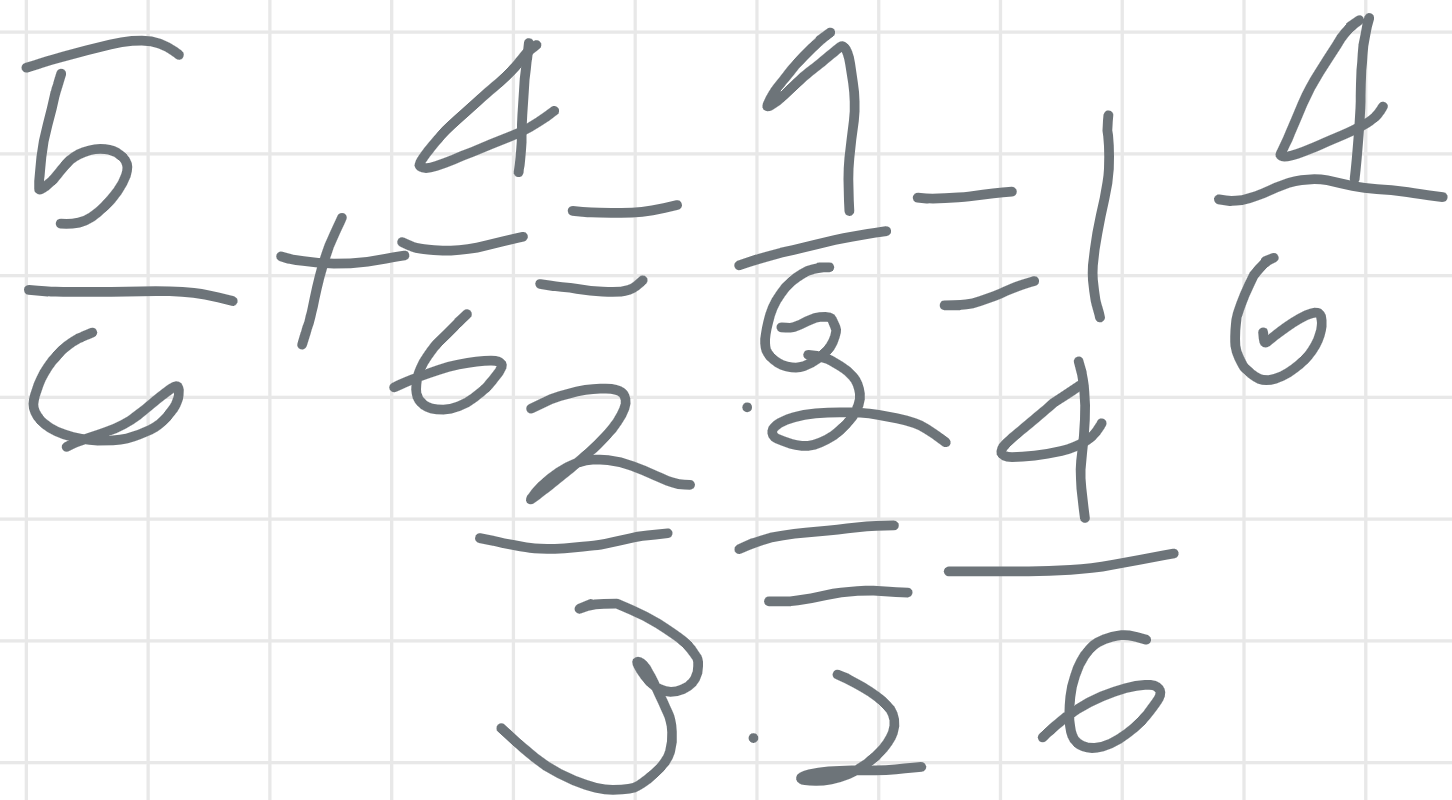 5/6 + 4/6 = 9/6 = 1 4/6
2/3 · 2/2 = 4/6